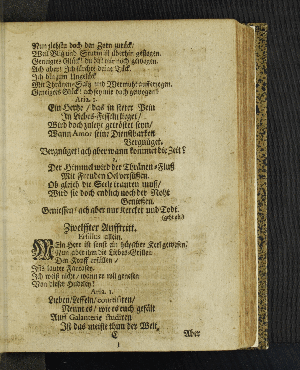 Nun ziehstu doch den Zorn zurück/
Weil Wind und Sturm ist überhin geflogen.
Geneigtes Glück! du bist mir noch gewogen.
Ach aber! Ich fürchte deine Tück.
Ich bin zum Unglück
Mit Thränen-Saltz und Wermuth aufferzogen.
Geneigtes Glück! ach sey mir doch gewogen!
Aria. 1.
Ein Hertze / das in steter Pein
In Liebes-Fesseln lieget /
Wird doch zuletzt getröstet seyn/
Wann Amor seine Dienstbarkeit
Vergnüget.
Vergnüget! ach aber wann kommet die Zeit?
2.
Der Himmel wird der Thränen-Fluß
Mit Freuden Oel versüßen.
Ob gleich die Seele trauren muß/
Wird sie doch endlich noch der Noht
Genießen.
Genießen / ach aber nur Kercker und Todt.
(geht ab)
Zwölffter Aufftritt.
allein.
Mein Herr ist sonst ein hübscher Kerl gewesen/
Nun aber ihm die Liebes-Grillen
Den Kopff erfüllen /
Ists lauter Fantasey.
Ich weiß nicht / wann er will genesen
Von dieser
Aria. 1.
Lieben / Leffeln / courtisiren/
Nennt es / wie es euch gefält
Auff Galanterie studiren
Ist das meiste thun der Welt,
C
Aber